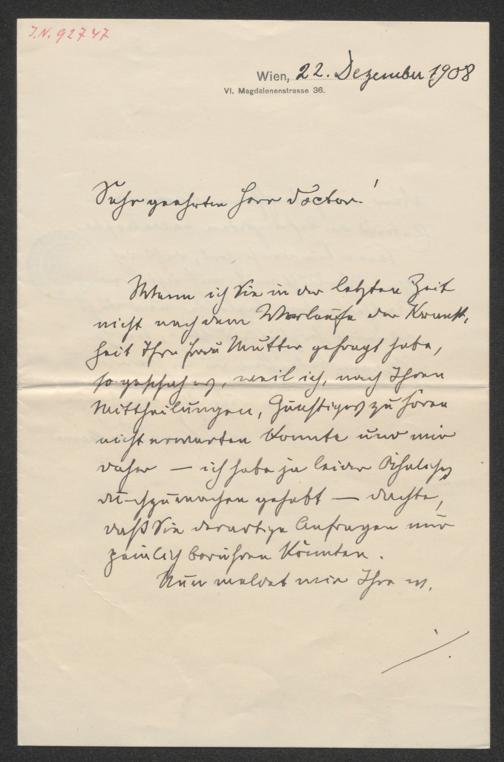 I.N. 92747
Wien, 22. Dezember 1908
VI. Magdalenenstrasse 36.
Sehr geehrter Herr Doctor!
Wenn ich Sie in der letzten Zeit
nicht nach dem Verlaufe der Krank-
heit Ihrer Frau Mutter gefragt habe,
so geschah es, weil ich, nach Ihren
Mittheilungen, Günstiges zu hören
nicht erwarten konnte und mir
daher — ich habe ja leider Ähnliches
durchzumachen gehabt — dachte,
daß Sie derartige Anfragen nur
peinlich berühren könnten.
Nun meldet mir Ihre w.
./.